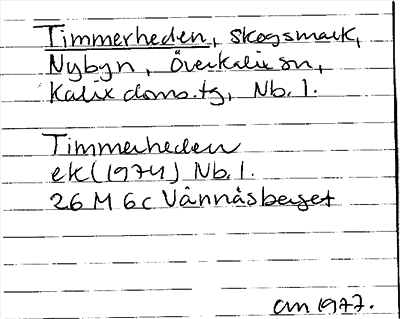 Timmerheden, skogsmark,
Nybyn, Överkalix sn,
Kalix doms.tg, Nb.l.
Timmerheden
ek(1974) Nb.l.
26 M 6c Vännäsberget
am 1977.